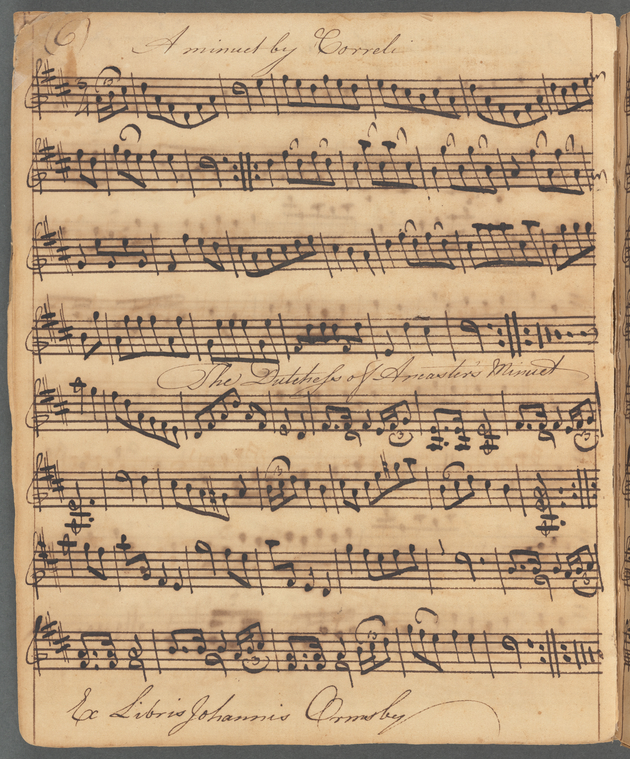 (6)
A minuet by Correli
The Dutchess of Ancaster's Minuet
Ex Libris Johannis Ormsby